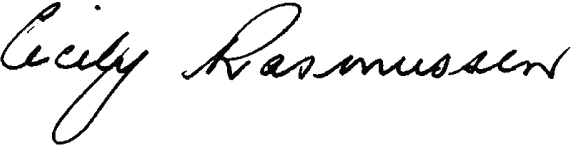 Cicily Rasmussen